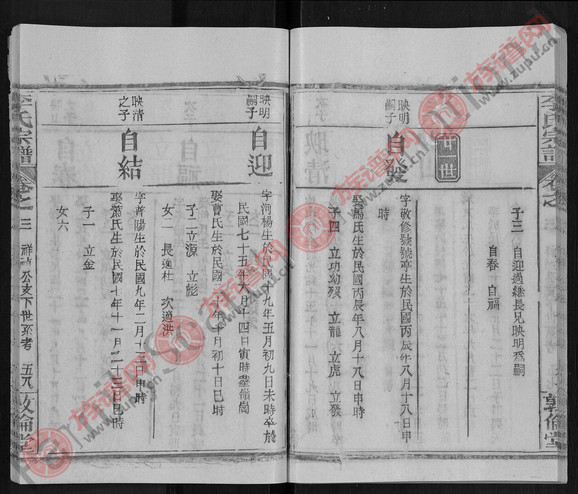 李氏宗譜
敦倫堂
子三 自迎過繼長兄映明爲嗣
自春 自福
廿一世
映明嗣子
自發
字敬修號號卒生於民國丙辰年八月十八日申時
娶萬氏生於民國丙辰年八月十八日申時
子四 立功幼殁 立龍 立虎 立發
映明嗣子
自迎
字河楊生於民國九年五月初九日未時卒於
民國七十五年六月十四日寅時
娶曹氏生於民國十年十月初十日巳時
子二 立源 立彪
女二 長適杜 次適洪
映清之子
自結
字普陽生於民國九年二月十三日申時
娶蕭氏生於民國十年十一月二十三日巳時
子一 立金
女六
李氏宗譜
卷之三
祥 公支下世系者
五八
敦倫堂
族譜网
www.zupu.cn